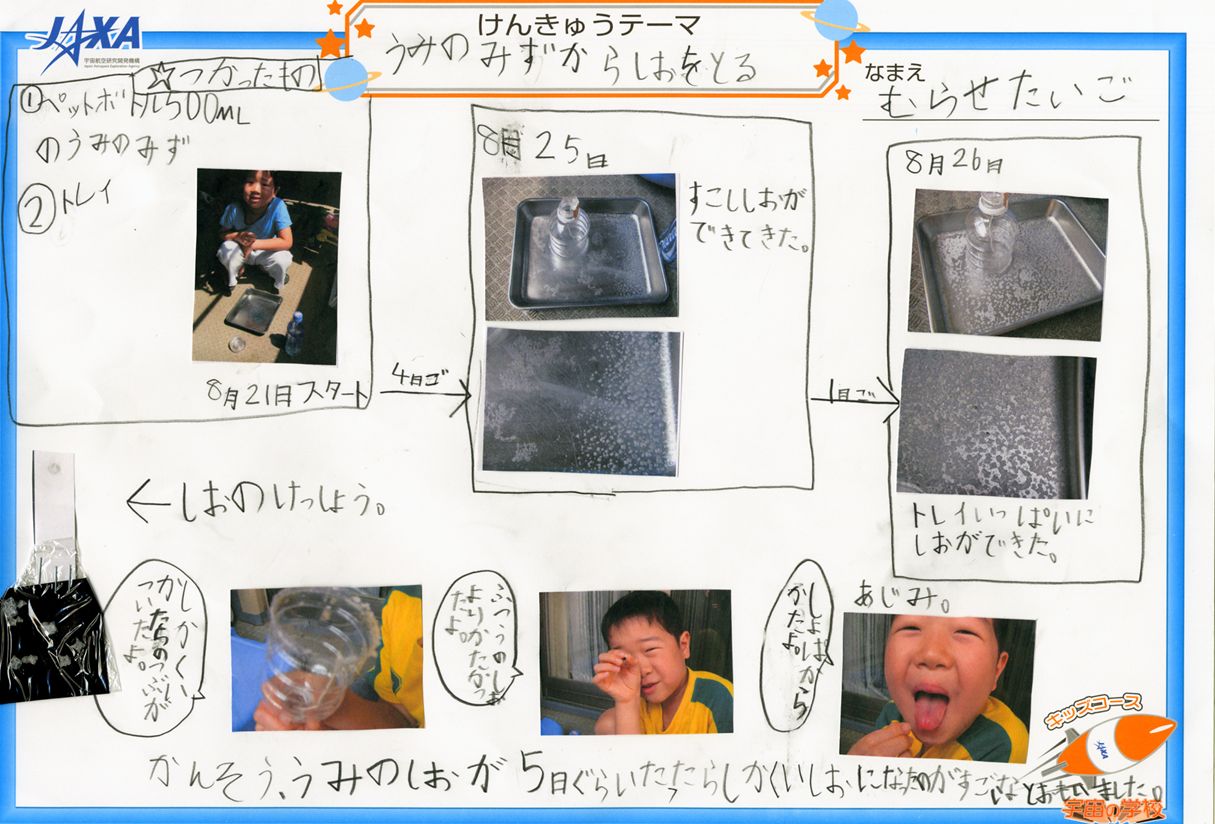 JAXA
宇宙航空研究開発機構
Japan Aerospace Exploration Agency
けんきゅうテーマ
うみのみずからしおをとる
なまえ
むらせたいご
☆つかったもの
①ペットボトル500mL
のうみのみず
②トレイ
8月21日スタート
4日ご
8月25日
すこししおが
できてきた。
1日ご
8月26日
トレイいっぱいに
しおができた。
←しおのけっしょう。
あじみ。
しょぱから
かたよ。
ふつうのしお
よりかたかっ
たよ。
しかくい
かたちのつぶが
ついたよ。
かんそう、うみのしおが5日ぐらいたったらしかくいしおになったのがすごいなとおもいました。
キッズコース
JAXA
宇宙の学校